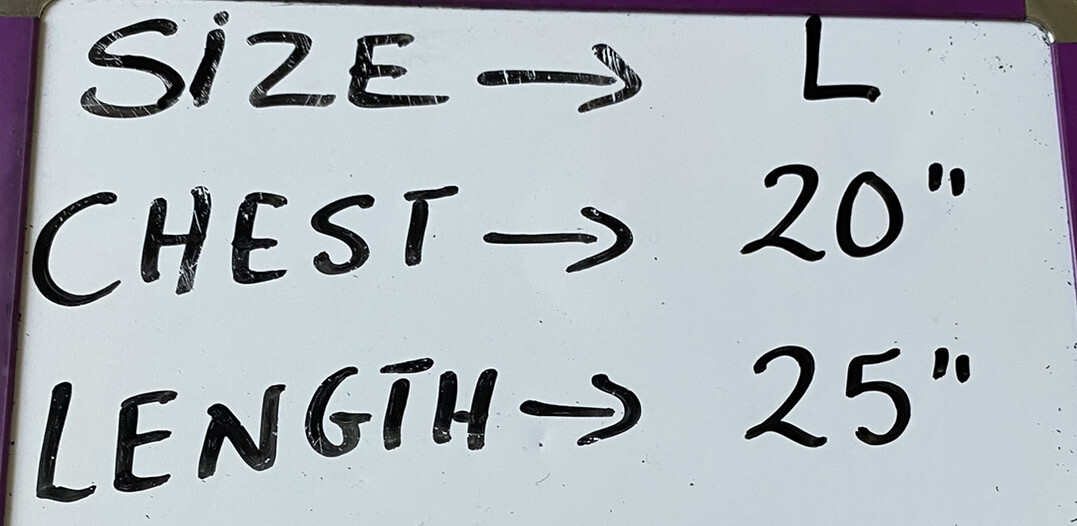 SiZE → L
CHEST → 20"
LENGTH → 25"